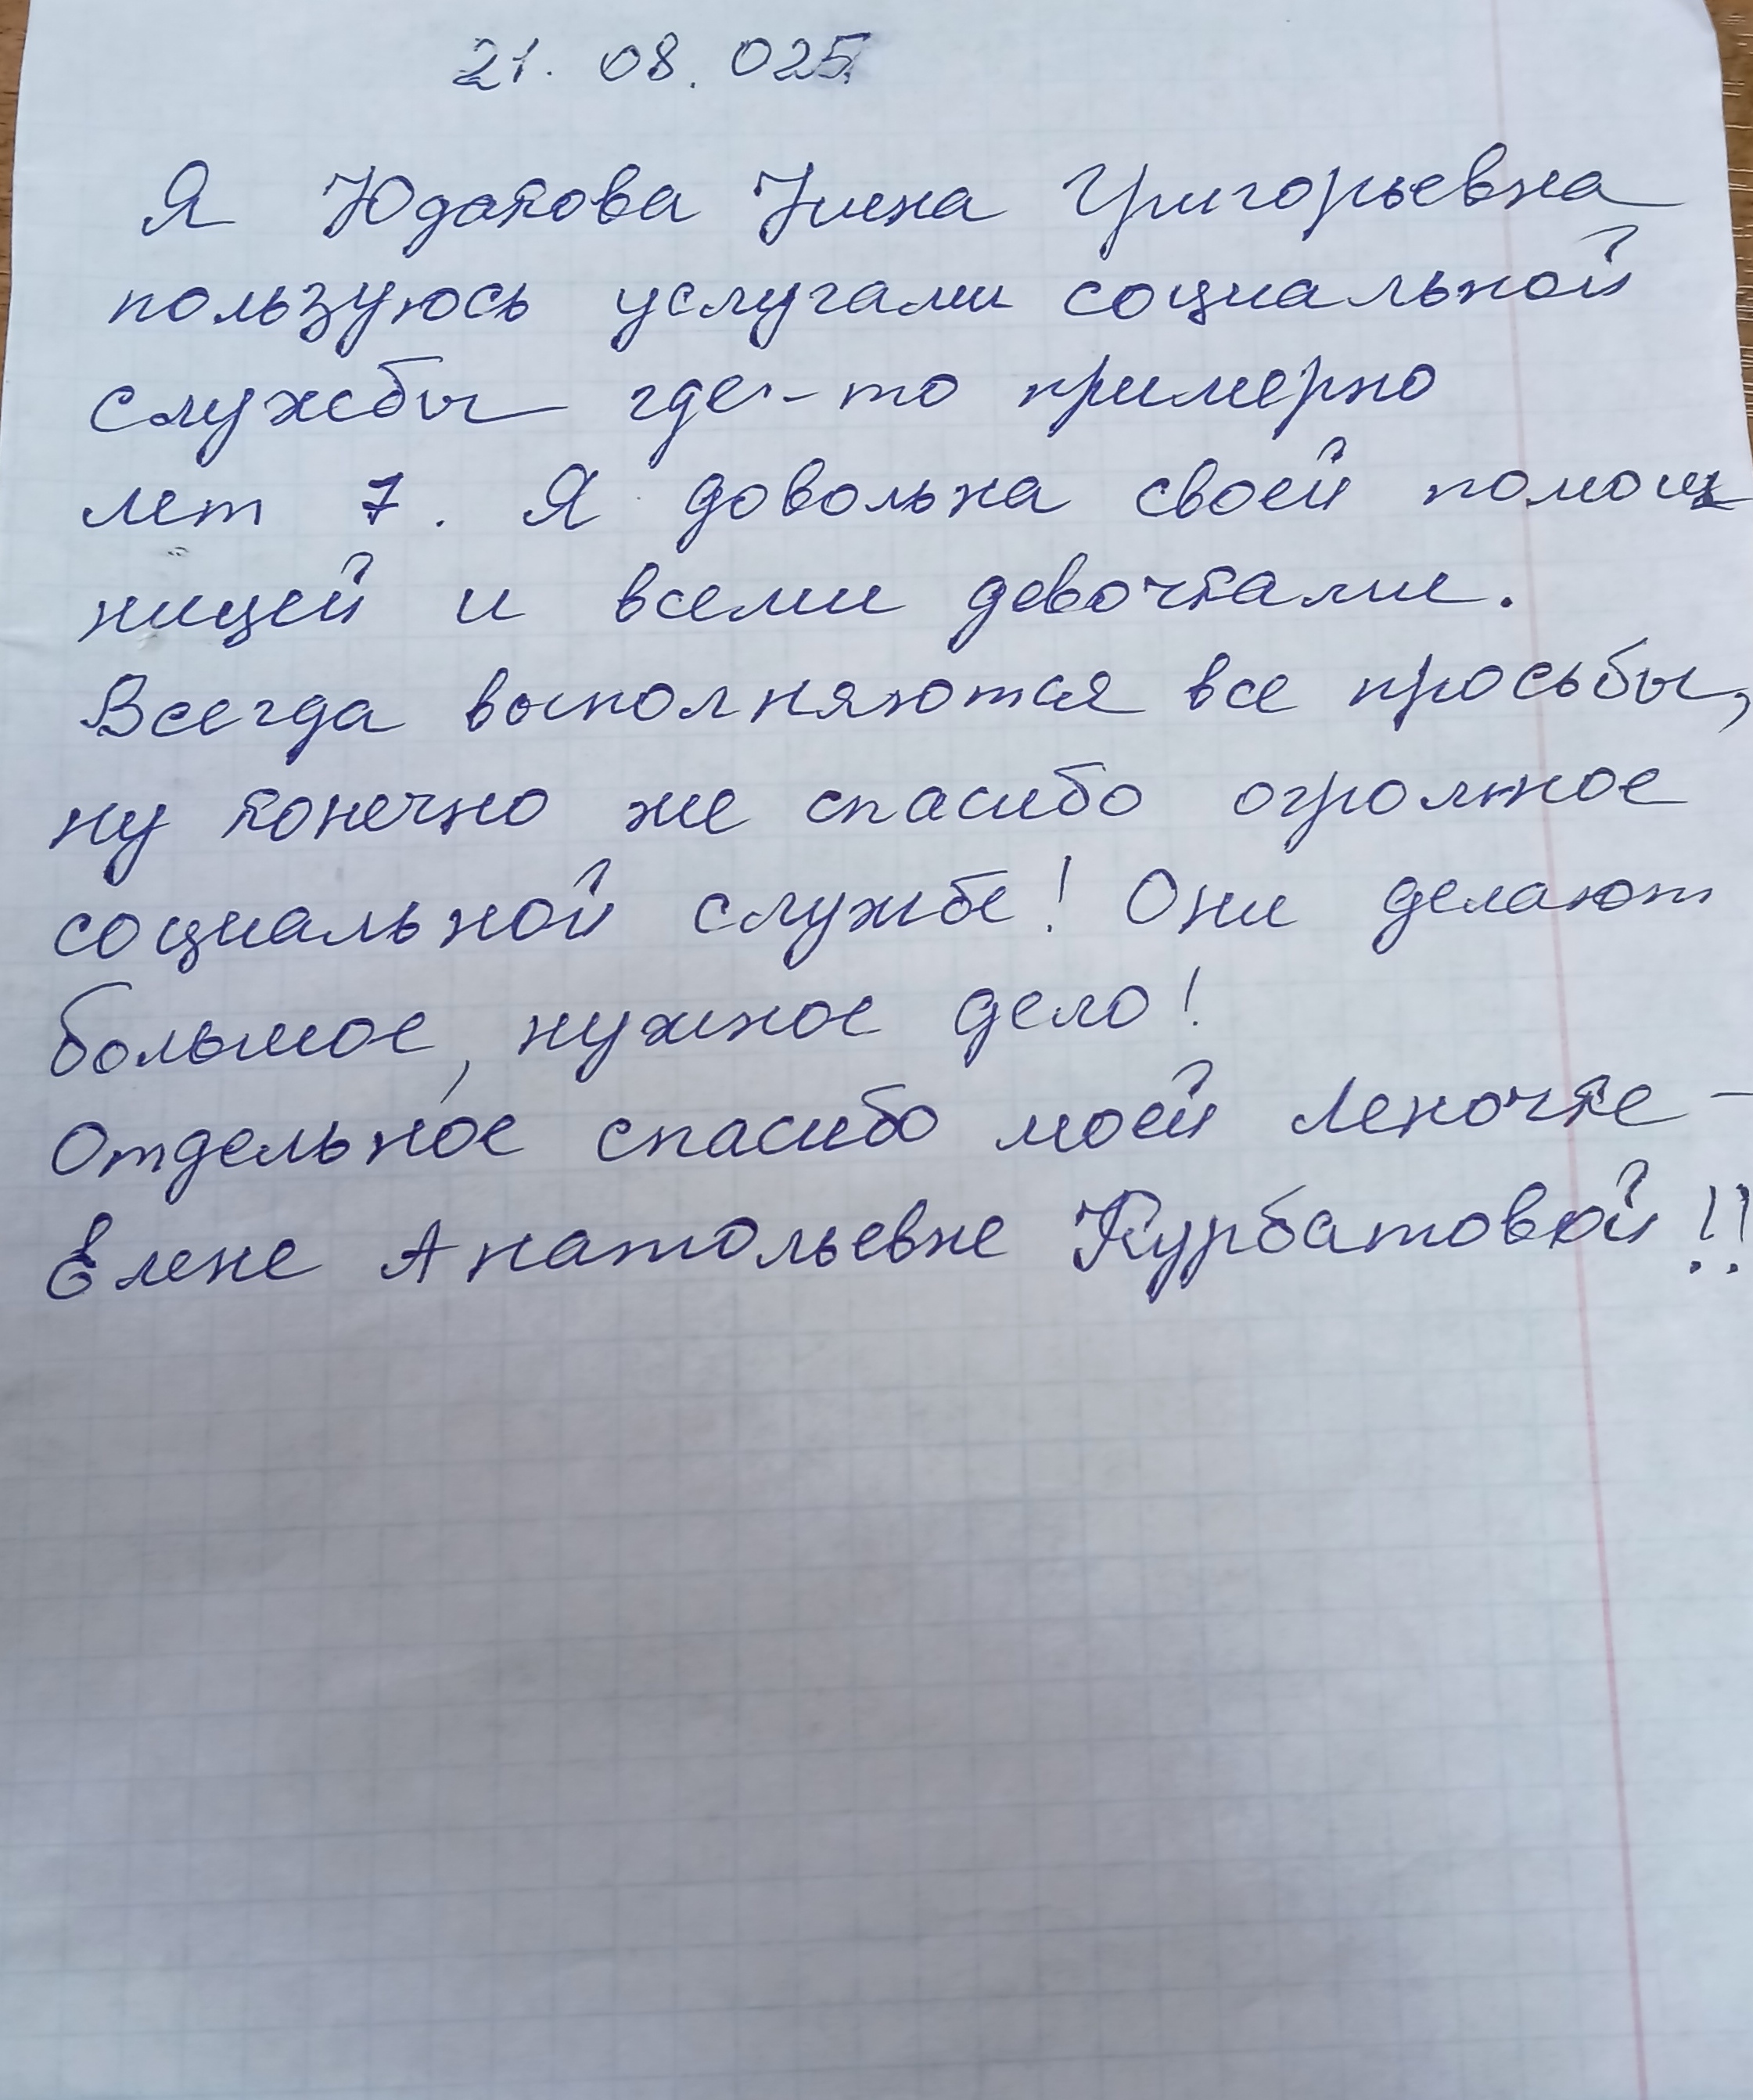 21. 08. 025
Я Юдакова Нина Григорьевна
пользуюсь услугами социальной
службы где-то примерно
лет 7. Я довольна своей помощ
ницей и всеми девочками.
Всегда выполняются все просьбы,
ну конечно же спасибо огромное
социальной службе! Они делают
большое, нужное дело!
Отдельное спасибо моей Леночке -
Елене Анатольевне Курбатовой!!